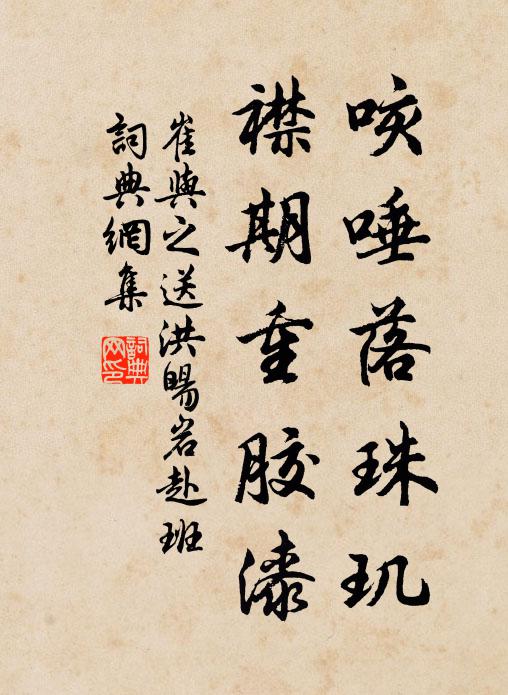 咳唾落珠玑
襟期重胶漆
崔與之送洪暘岩赴班
詞典網集
詞典网印